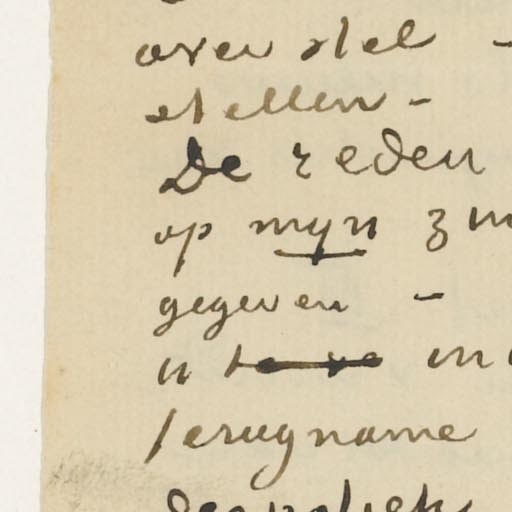 over stel –
stellen –
De reden
op mijn
gegeven –
u
terugname